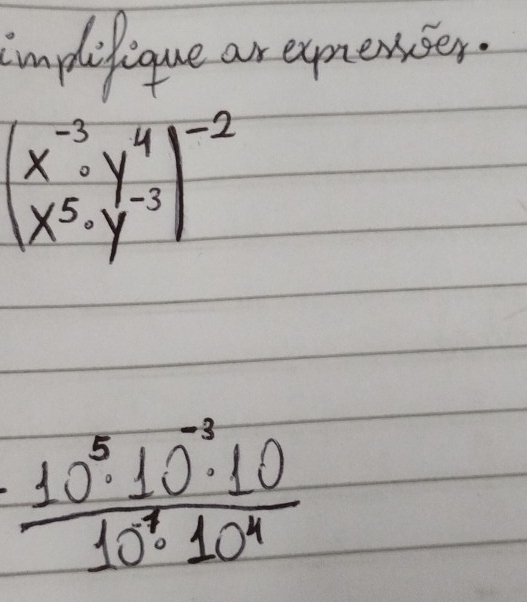 implifique as expressões.
(x⁻³ · y⁴
x⁵ · y⁻³)⁻²
10⁵ · 10⁻³ · 10
10⁻⁷ · 10⁴